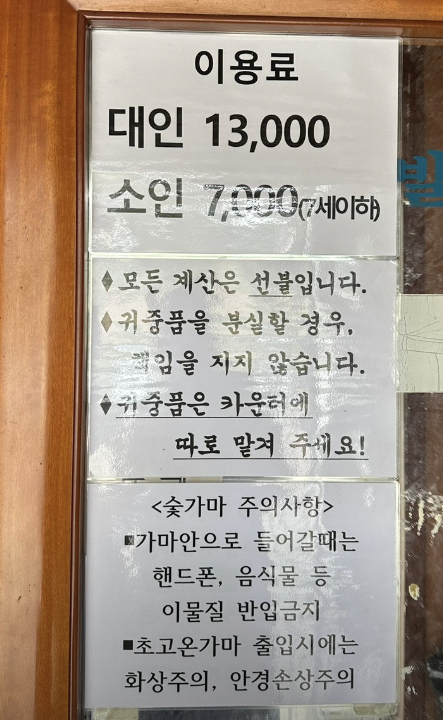 이용료
대인 13,000
소인 7,000(7세이하)
♦모든 계산은 선불입니다.
♦귀중품을 분실할 경우,
책임을 지지 않습니다.
♦귀중품은 카운터에
따로 맡겨 주세요!
<숯가마 주의사항>
■가마안으로 들어갈때는
핸드폰, 음식물 등
이물질 반입금지
■초고온가마 출입시에는
화상주의, 안경손상주의